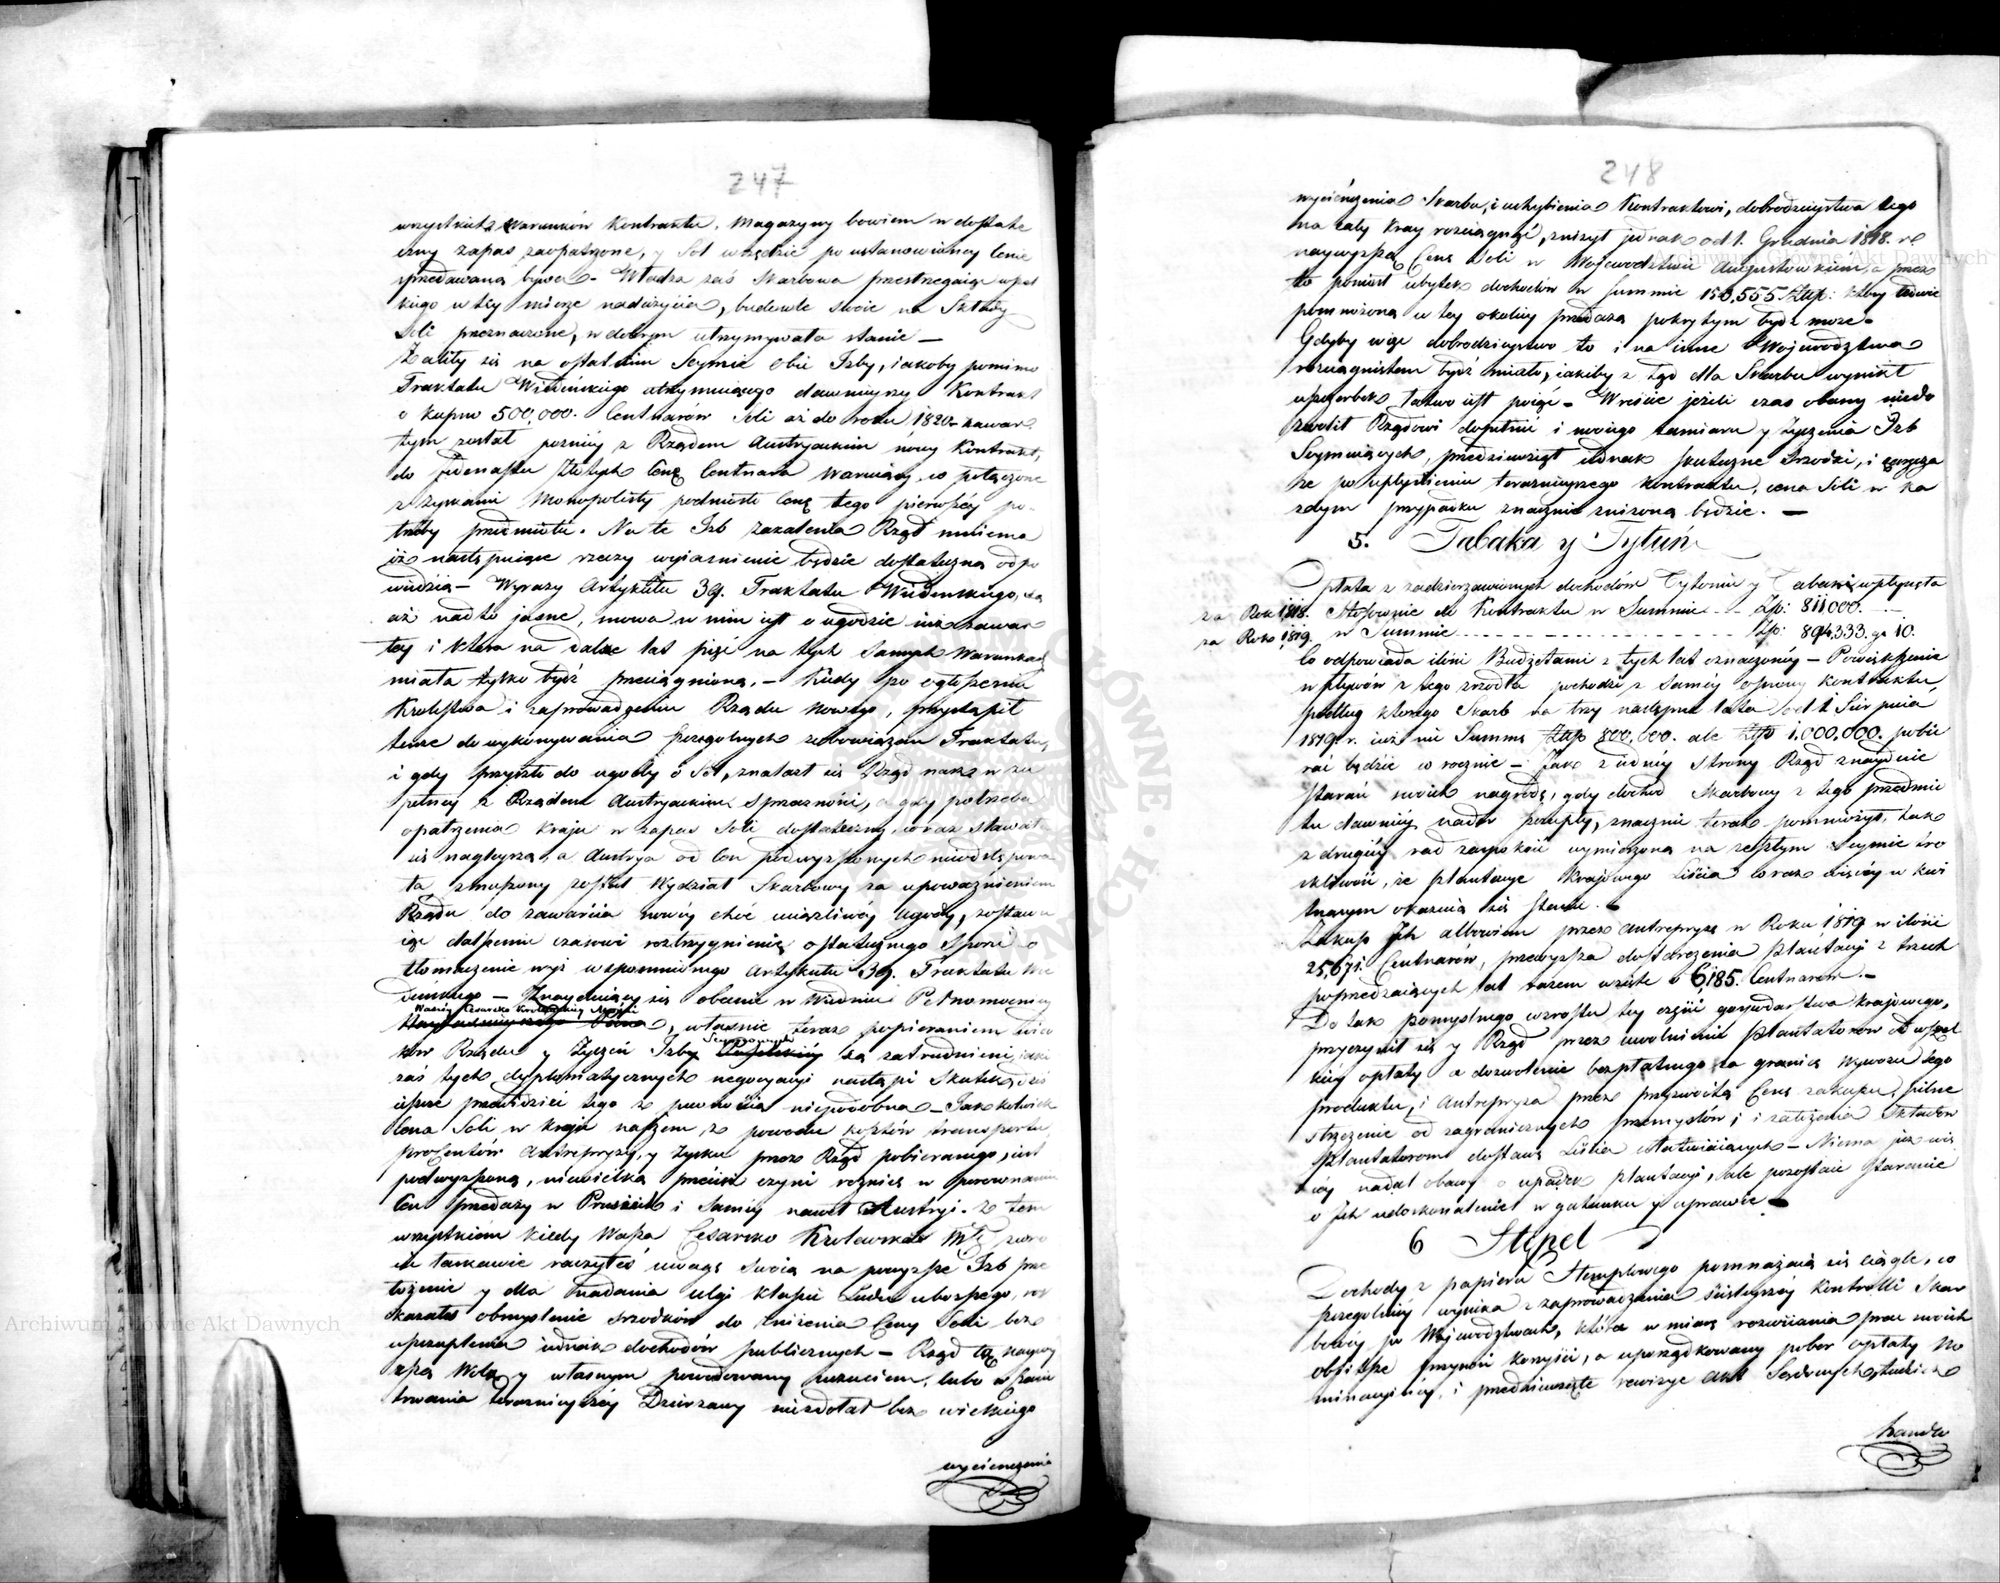 247
wszystkich warunków kontraktu. Magazyny bowiem w dostate
czny zapas zaopatrzone, y Sól wszędzie po ustanowioney Cenie
sprzedawaną bywa - Władza zaś Skarbowa przestrzegaiąc wszel
kiego w tey mierze nadużycia, budowle swoie na Składy
Soli przeznaczone, w dobrym utrzymywała stanie —
Żaliły się na ostatnim Seymie obie Izby, iakoby pomimo
Traktatu Wiedeńskiego utrzymuiącego dawnieyszy Kontrakt
o kupno 500,000. Centnarów Soli aż do roku 1820 - zawar
tym został pózniey z Rządem Austryackim nowy Kontrakt,
do iedenastu Złotych Cenę Centnara waruiący, co połączone
z zyskami Monopolisty podniosło Cenę tego pierwszéy po-
trzeby przedmiotu. Na te Izb zażalenia Rząd mniema
iż następuiące rzeczy wyiaśnienie będzie dostateczną odpo
wiedzią - Wyrazy Artykułu 39. Traktatu Wiedeńskiego, są
aż nadto jasne, mowa w nim iest o ugodzie iuż zawar
tey i która na dalsze lat pięć na tych samych Warunkach
miała tylko bydź przeciągnioną. - Kiedy po ogłoszeniu
Królestwa i zaprowadzeniu Rządu nowego, przystąpił
tenże do wykonywania szczególnych zobowiązań Traktatu,
i gdy przyszło do ugody o Sól, znalazł się Rząd nasz w zu
pełney z Rządem Austryackim sprzeczności, a gdy potrzeba
opatrzenia kraju w zapas Soli dostateczny coraz stawała
się nagleyszą, a Austrya od Cen podwyższonych nieodstępowa
ła zmuszony został Wydział Skarbowy za upoważnieniem
Rządu do zawarcia nowéy choć uciążliwéy Ugody, zostawu
iąc dalszemu czasowi rozstrzygnienie ostatecznego Sporu o
tłomaczenie wyż wspomnionego Artykułu 39. Traktatu Wie
deńskiego — Znayduiący się obecnie w Wiedniu Pełnomocnicy
Waszéy Cesarsko Królewskiéy Mości
, własnie teraz popieraniem wnio
sków Rządu y życzeń Izby Seymowych są zatrudnieni, iaki
zaś tych dyplomatycznych negocyacyi nastąpi Skutek, dziś
ieszcze przewidzieć tego z pewnością niepodobna — Jakkolwiek
Cena Soli w kraju naszem, z powodu kosztów transportu
procentów Antrepryzy, y Zysku przez Rząd pobieranego, iest
podwyższoną, niewielką przecież czyni różnicę w porównaniu
Cen sprzedaży w Prusiech i saméy nawet Austryi. Z tem
wszystkiém kiedy Wasza Cesarsko Królewska Mść zwró
cić łaskawie raczyłeś uwagę Swoią na powyższe Izb prze
łożenie y dla nadania ulgi klassie Ludu uboższego, roz
kazałeś obmyślenie środków do zniżenia Ceny Soli bez
uszczuplenia iednak dochodów publicznych — Rząd tą naywy
ższą Wolą y własnym powodowany uczuciem, lubo w ciągu
trwania teraznieyszéy Dzierżawy niezdołał bez wielkiego
wycieńczenia
248
wycieńczenia Skarbu, i uchybienia Kontraktowi, dobrodzieystwa tego
na cały Kray rozciągnąć, zniżył jednak od 1. Grudnia 1818. r
naywyższą Cenę Soli w Województwie Augustowskiem, a przez
to poniósł ubytek dochodów w summie 150,555 Złtp: który ledwie
pomnożoną w tey okolicy przedażą pokrytym bydź może -
Gdyby więc dobrodzieystwo to i na inne Województwa
rozciągnistem bydź miało, iakiby z tąd dla Skarbu wynikł
uszczerbek łatwo iest poiąć - Wreście jeżeli czas obecny niedo
zwolił Rządowi dopełnić i swoiego zamiaru y życzenia Izb
Seymuiących, przedsięwziął iednak skuteczne środki, i
że po upłynieniu teraznieyszego kontraktu, cena Soli w ka
żdym przypadku znacznie zniżoną będzie. —
5. Tabaka y Tytuń
Opłata z zadzierżawionych dochodów Tytoniu y Tabaki wpłynęła
za Rok 1818. Stosownie do Kontraktu w Summie - - Złp: 811000. —
za Rok 1819. w Summie - - - - - - - - - - - Złp: 894,333. gr 10.
Co odpowiada ilości Budżetami z tych lat oznaczonéy — Powiększenie
wpływów z tego źrzodła pochodzi z saméy osnowy kontraktu,
podług którego Skarb na trzy następne lata od 1 Sierpnia
1819. r. iuż nie Summę Złtp 800,000. ale Złtp 1,000,000. pobie
rać będzie corocznie — Jak z iednéy strony Rząd znayduie
starań swoich nagrodę, gdy dochod Skarbowy z tego przedmio
tu dawniey nader szczupły, znacznie teraz pomnożył, tak
z drugiéy rad zaspokoić wymierzoną na zeszłym Seymie tro
skliwość, że plantacye krajowego Liścia coraz więcéy w kwi
tnącym okazuią się stanie. -
Zakup Ich albowiem przez antrepryzę w Roku 1819 w ilości
25,671. Centnarów, przewyższa dostarczenia plantacyi z trzech
poprzedzaiących lat razem wzięte o 6,185. Centnarów. -
Do tak pomyślnego wzrostu tey części gospodarstwa krajowego,
przyczynił się y Rząd przez uwolnienie plantatorów od wszel
kiéy opłaty a dozwolenie bezpłatnego za granicę wywozu tego
produktu, i Antrepryza przez przyzwoitą Cenę zakupu, pilne
strzeżenie od zagranicznych przemysłów, i założenie składów
plantatorom dostawę Liścia ułatwiaiących - Niema już wię
céy nadal obawy o upadek plantacyi, ale pozostaie staranie
o Ich udoskonalenie w gatunku y uprawie -
6 Stępel
Dochody z papieru Stemplowego pomnażaią się ciągle, co
szczególniéy wynika z zaprowadzenia ściśleyszéy Kontrolli Skar
bowéy po Województwach, która w miarę rozwiiania prac swoich
obfitsze przynosi korzyści, a uporządkowany pobor opłaty No
minacyinéy, i przedsięwzięte rewizye akt Sądowych, tudzież
handlu